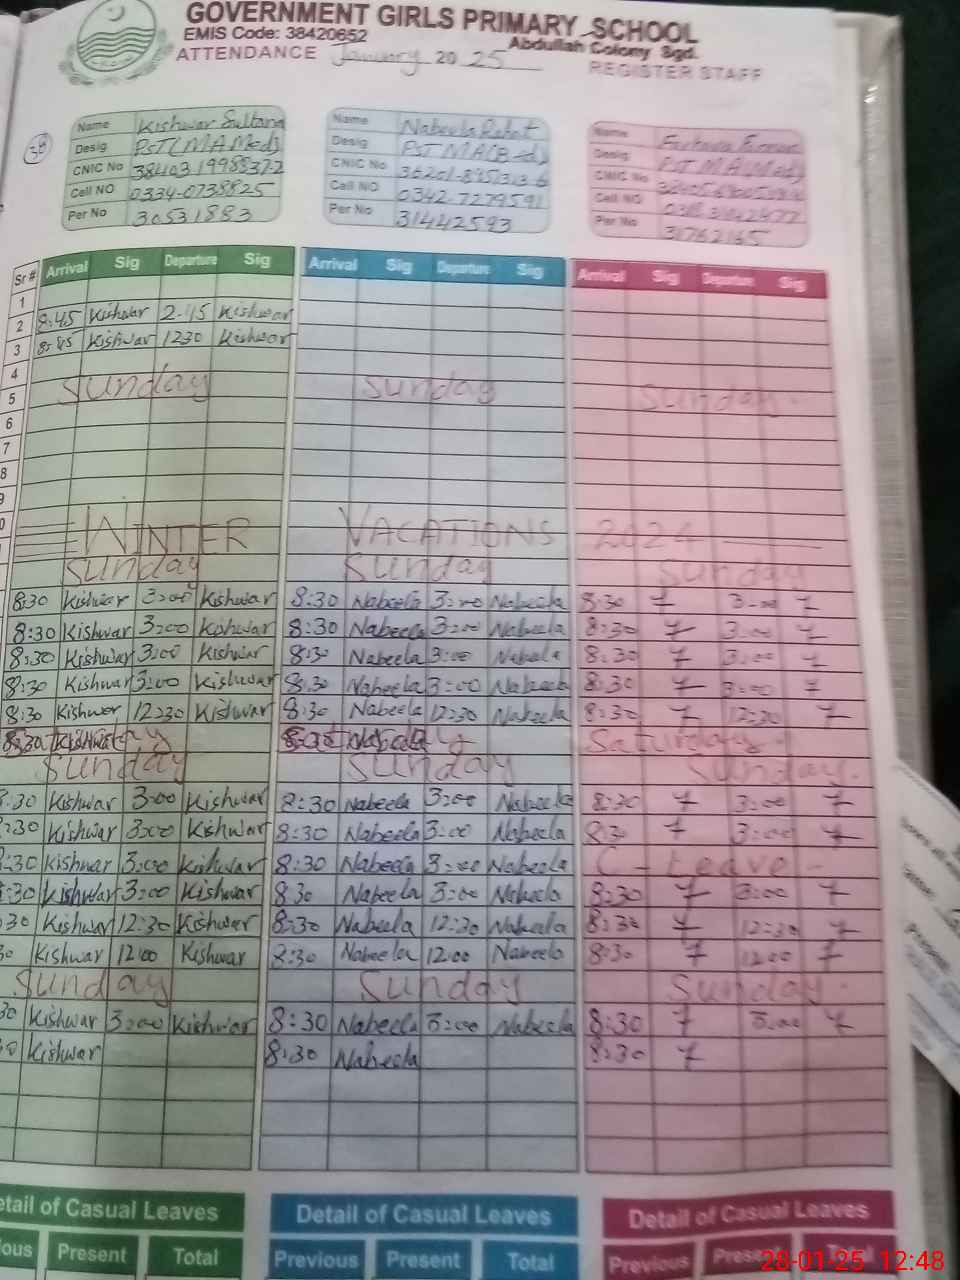 GOVERNMENT GIRLS PRIMARY SCHOOL
EMIS Code: 38420652
Abdullah Colony Sgd.
ATTENDANCE January 20 25
REGISTER STAFF
38
Name Kishwar Sultana
Desig PST (M.A M.ed)
CNIC No
Cell NO 0334-0738825
Per No 30531883
Name Nabeela Rahat
Desig PST M.A (B.ed)
CNIC No
Cell NO 0342-7279591
Per No 31442593
Name
Desig PST M.A (M.ed)
CNIC No
Cell NO
Per No 31762165
Sr # Arrival Sig Departure Sig Arrival Sig Departure Sig Arrival Sig Departure Sig
1
2 8:45 Kishwar 2.45 Kishwar
3 8:45 Kishwar 1230 Kishwar
4
5 Sunday Sunday Sunday.
6
7
8
9
0
WINTER VACATIONS 2024
Sunday Sunday Sunday
8:30 Kishwar 3:00 Kishwar 8:30 Nabeela 3:00 Nabeela 8:30 3:00
8:30 Kishwar 3:00 Kishwar 8:30 Nabeela 3:00 Nabeela 8:30 3:00
8:30 Kishwar 3:00 Kishwar 8:30 Nabeela 3:00 Nabeela 8:30 3:00
8:30 Kishwar 3:00 Kishwar 8:30 Nabeela 3:00 Nabeela 8:30 3:00
8:30 Kishwar 12:30 Kishwar 8:30 Nabeela 12:30 Nabeela 8:30 12:30
8:30 Kishwar 8:30 Nabeela Saturday.
Sunday Sunday Sunday.
:30 Kishwar 3:00 Kishwar 8:30 Nabeela 3:00 Nabeela 8:30 3:00
:30 Kishwar 3:00 Kishwar 8:30 Nabeela 3:00 Nabeela 8:30 3:00
:30 Kishwar 3:00 Kishwar 8:30 Nabeela 3:00 Nabeela C-Leave-
:30 Kishwar 3:00 Kishwar 830 Nabeela 3:00 Nabeela 8:30 3:00
30 Kishwar 12:30 Kishwar 8:30 Nabeela 12:30 Nabeela 8:30 12:30
30 Kishwar 12:00 Kishwar 8:30 Nabeela 12:00 Nabeela 8:30 12:00
Sunday Sunday Sunday.
30 Kishwar 3:00 Kishwar 8:30 Nabeela 3:00 Nabeela 8:30 3:00
Kishwar 8:30 Nabeela 8:30
etail of Casual Leaves Detail of Casual Leaves Detail of Casual Leaves
ious Present Total Previous Present Total Previous Present Total
28-01-25 12:48